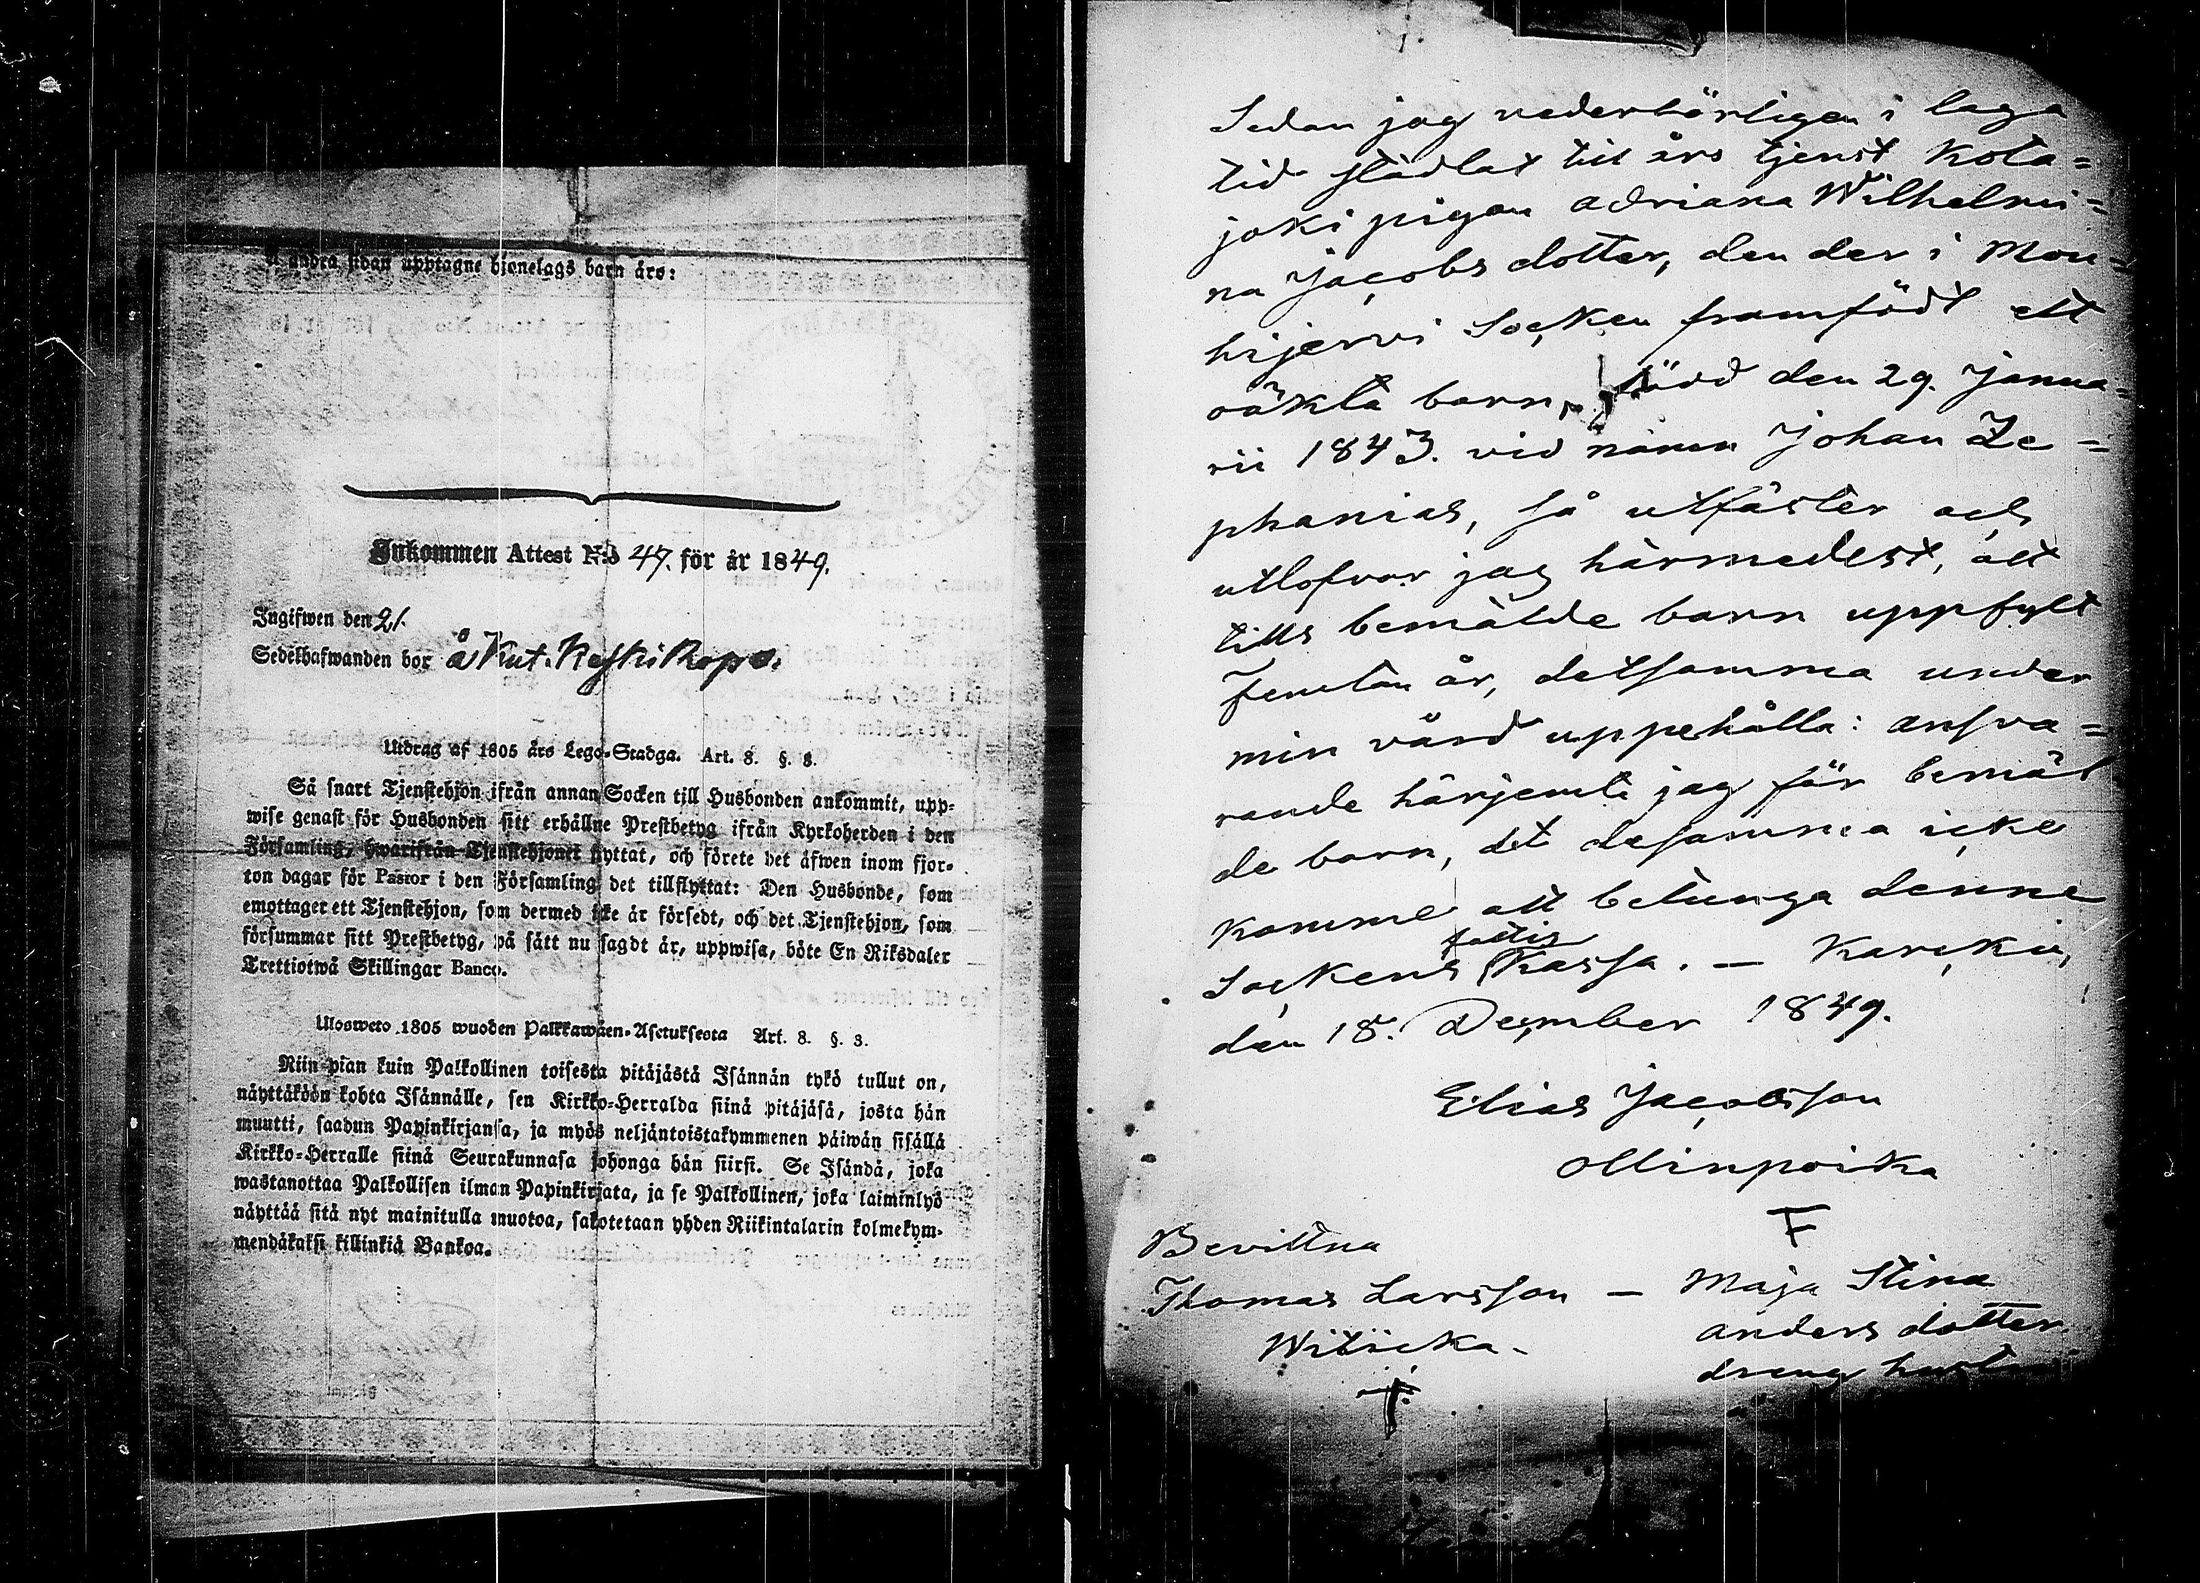 andra sidan upptagne hjonelags barn äro:
Inkommen Attest N:o 47. för år 1849.
Ingifwen den 21.
Sedelhafwanden bor å Kut. Keski Ropo.
Utdrag af 1805 års Lego-Stadga. Art. 8. §. 3.
Så snart Tjenstehjon ifrån annan Socken till Husbonden ankommit, upp-
wise genast för Husbonden sitt erhållne Prestbetyg ifrån Kyrkoherden i den
Församling, hwarifrån Tjenstehjonet flyttat, och förete det äfwen inom fjor-
ton dagar för Pastor i den Församling det tillflyttat: Den Husbonde, som
emottager ett Tjenstehjon, som dermed icke är försedt, och det Tjenstehjon, som
försummar sitt Prestbetyg, på sätt nu sagdt är, uppwisa, böte En Riksdaler
Trettiotwå Skillingar Banco.
Ulosweto 1805 wuoden Palkkawäen-Asetuksesta Art. 8. §. 3.
Niin pian kuin Palkollinen toisesta pitäjästä Isännän tykö tullut on,
näyttäköön kohta Isännälle, sen Kirkko-Herralda siinä pitäjäsä, josta hän
muutti, saadun Papinkirjansa, ja myös neljäntoistakymmenen päiwän sisällä
Kirkko-Herralle siinä Seurakunnasa johonga hän siirsi. Se Isändä, joka
wastanottaa Palkollisen ilman Papinkirjata, ja se Palkollinen, joka laiminlyö
näyttää sitä nyt mainitulla muotoa, sakotetaan yhden Riikintalarin kolmekym-
mendäkaksi killinkiä Bankoa.
Sedan jag vederbörligen i laga
tid städlat till års tjenst Kota=
joki pigan Adriana Wilhelmi=
na Jacobsdotter, den der i Mou=
hijervi Socken framfödt ett
oäkta barn, född den 29. Janua=
rii 1843. vid namn Johan Ze=
phanias, så utfäster och
utlofvar jag härmedelst, att
tills bemälde barn uppfylt
Femton år, detsamma under
min vård uppehålla: ansva=
rande härjemte jag för bemäl
de barn, det desamma icke
komme att betunga denne
Sockens fattig Kassa. — Karckiu,
den 18. December 1849.
Elias Jacobsson
Ollinpoika
Bevittna
Thomas Larsson — Maja Stina
Witicka. Anders dotter
dreng hustru